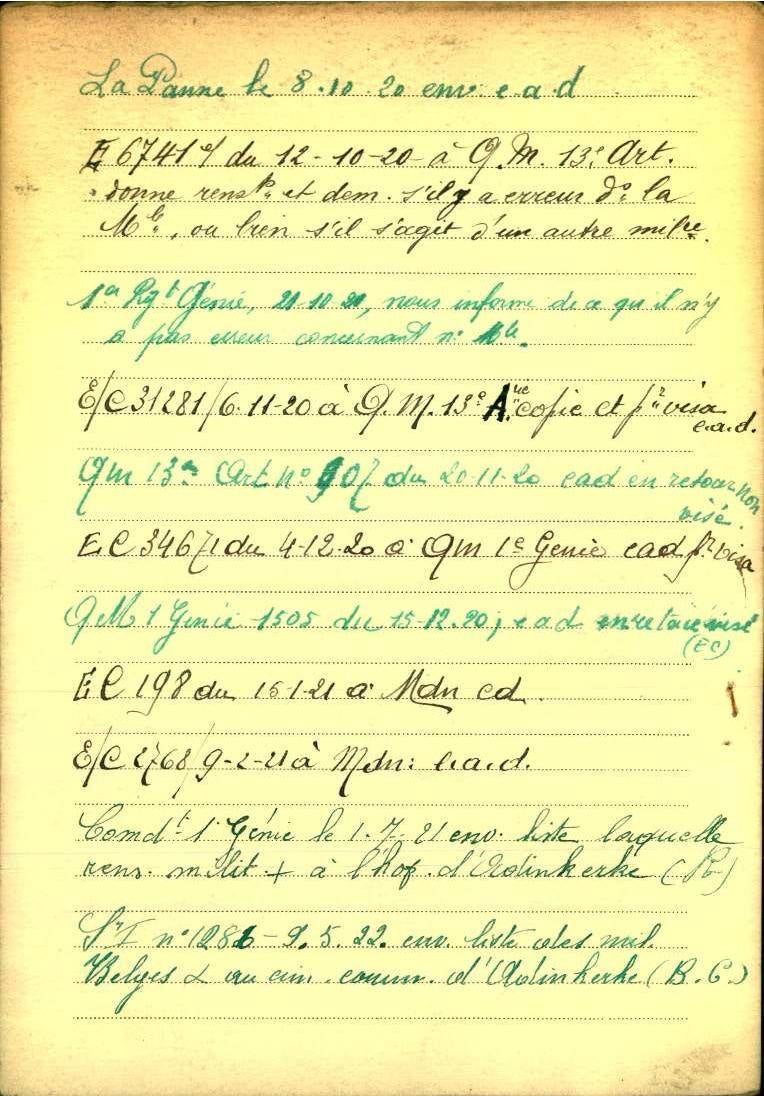 La Panne le 8.10.20 env. e.a.d
E 6741 e/ du 12-10-20 à Q.M. 13e Art.
donne rensts et dem. s'il y a erreur do la
Mle, ou bien s'il s'agit d'un autre milre.
1er Rgt Génie, 21.10.20, nous informe de ce qu'il n'y
a pas erreur concernant no Mle.
E/C 31281/6.11-20 à Q.M. 13e A. copie et pr visa
e.a.d.
Qm 13e Art no 907 du 20-11-20 ead en retour non
visé.
EC 34671 du 4-12-20 à Qm 1e Genie ead pr visa
QM 1 Genie 1505 du 15-12.20, ead en retour visé
(EC)
EC 198 du 15-1-21 à Mdn ed.
E/C 2768/9-2-21 à Mdn: e.a.d.
Comdt 1 Génie le 1.7.21 env. liste laquelle
rens. milit + à l'hop. d'Adinkerke (R)
no 1282 - 9.5.22. env. liste des mil.
Belges + au cim. comm. d'Adinkerke (B.C.)